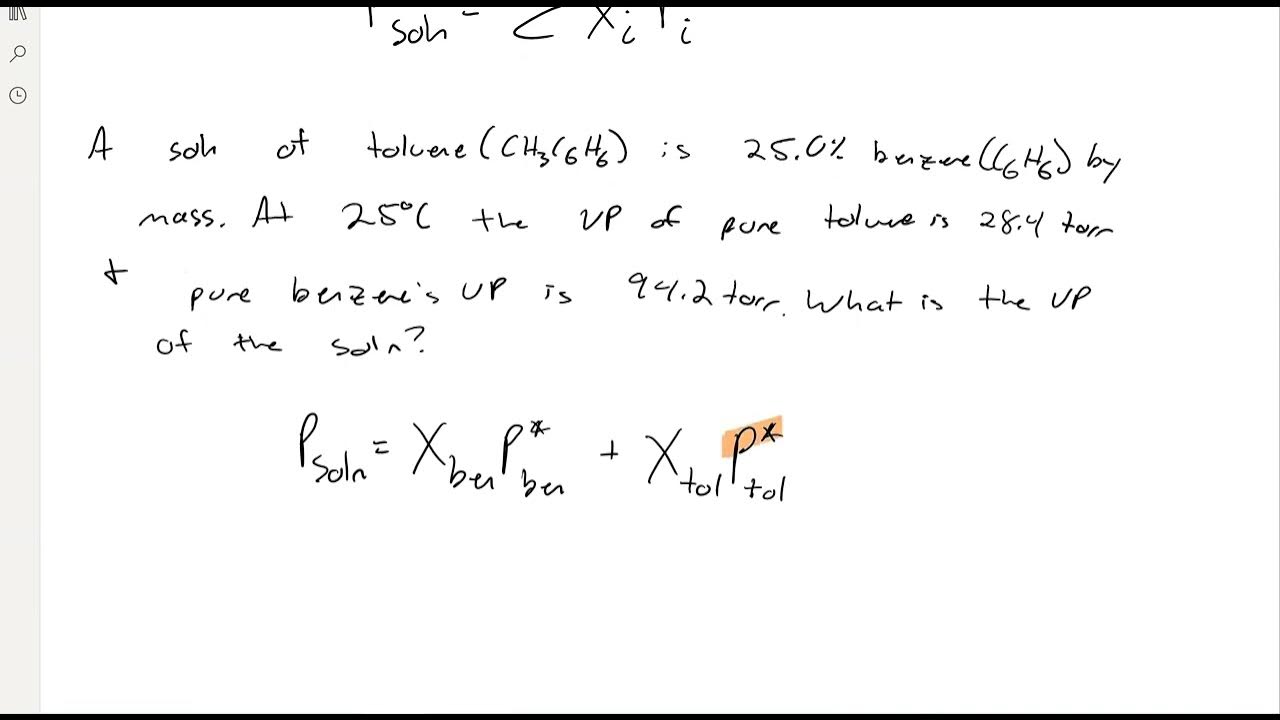 Psoln = Σ XiPi
A soln of toluene (CH3C6H6) is 25.0% benzene (C6H6) by
mass. At 25°C the VP of pure toluene is 28.4 torr
+ pure benzene's VP is 94.2 torr. What is the VP
of the soln?
Psoln = Xben P*ben + Xtol P*tol